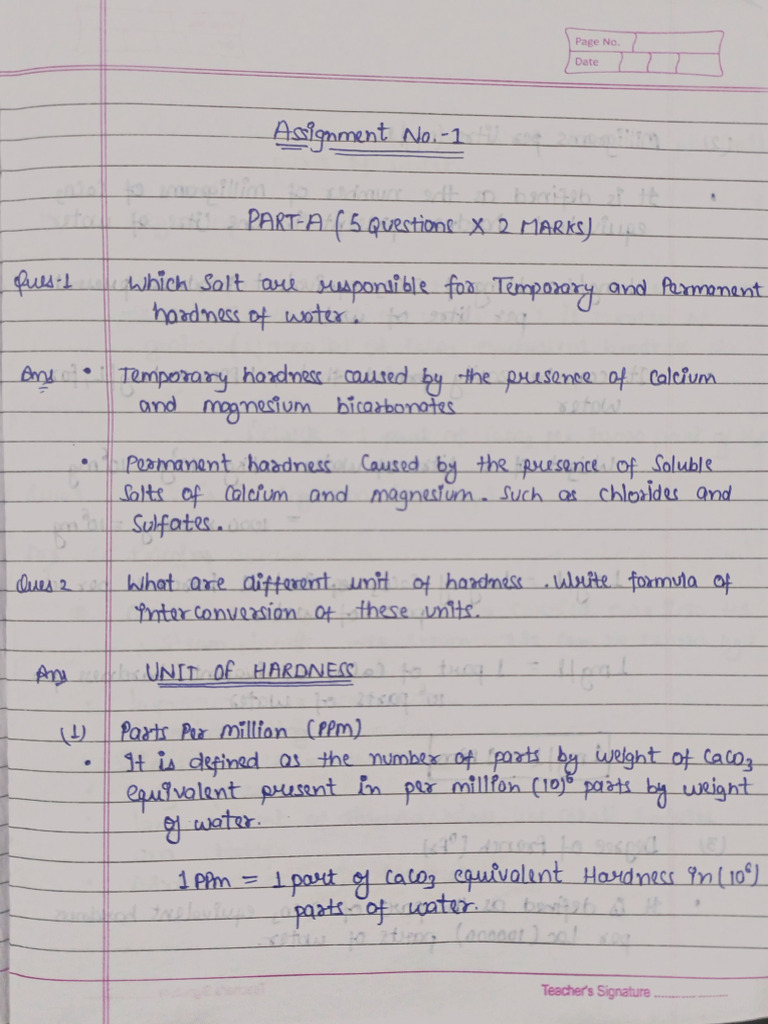 Page No.
Date
Assignment No.-1
PART-A ( 5 Questions X 2 MARKS)
Ques-1 Which Salt are responsible for Temporary and Permanent
hardness of water.
Ans • Temporary hardness caused by the presence of Calcium
and magnesium bicarbonates
• Permanent hardness Caused by the presence of Soluble
Salts of Calcium and magnesium. Such as chlorides and
Sulfates.
Ques 2 What are different unit of hardness. Write formula of
interconversion of these units.
Ans UNIT OF HARDNESS
(1) Parts Per million (PPm)
• It is defined as the number of parts by weight of CaCO3
equivalent present in per million (10)6 parts by weight
of water.
1 PPm = 1 part of CaCO3 equivalent Hardness in (10⁶)
parts of water.
Teacher's Signature ....................